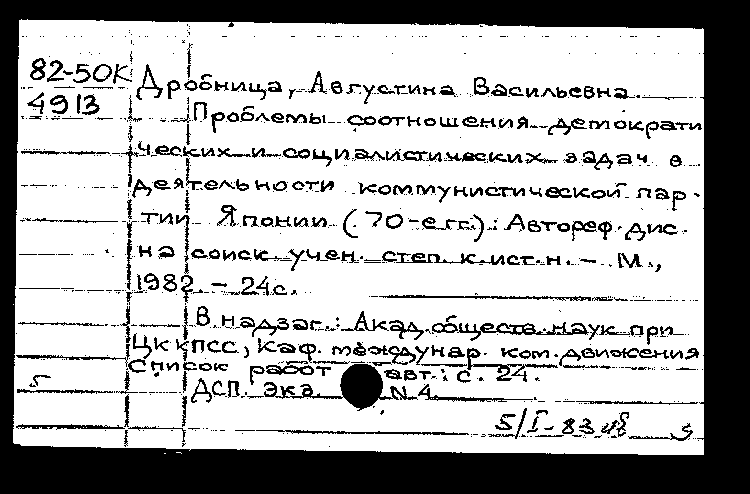 82-50К
4913
Дробница, Августина Васильевна.
Проблемы соотношения демократи
ческих и социалистических задач в
деятельности коммунистической пар-
тии Японии (70-е гг.): Автореф. дис.
на соиск. учен. степ. к.ист.н. – М.,
1982. – 24с.
В надзаг.: Акад. обществ. наук при
ЦК КПСС, Каф. междунар. ком. движения
Список работ авт.: с. 24.
ДСП. Экз. N 4.
5
5/I-83